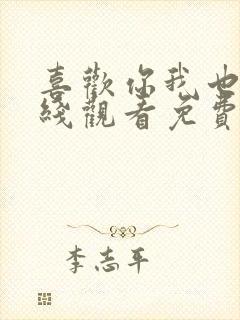 喜歡你我也
綫觀看免費
李志平